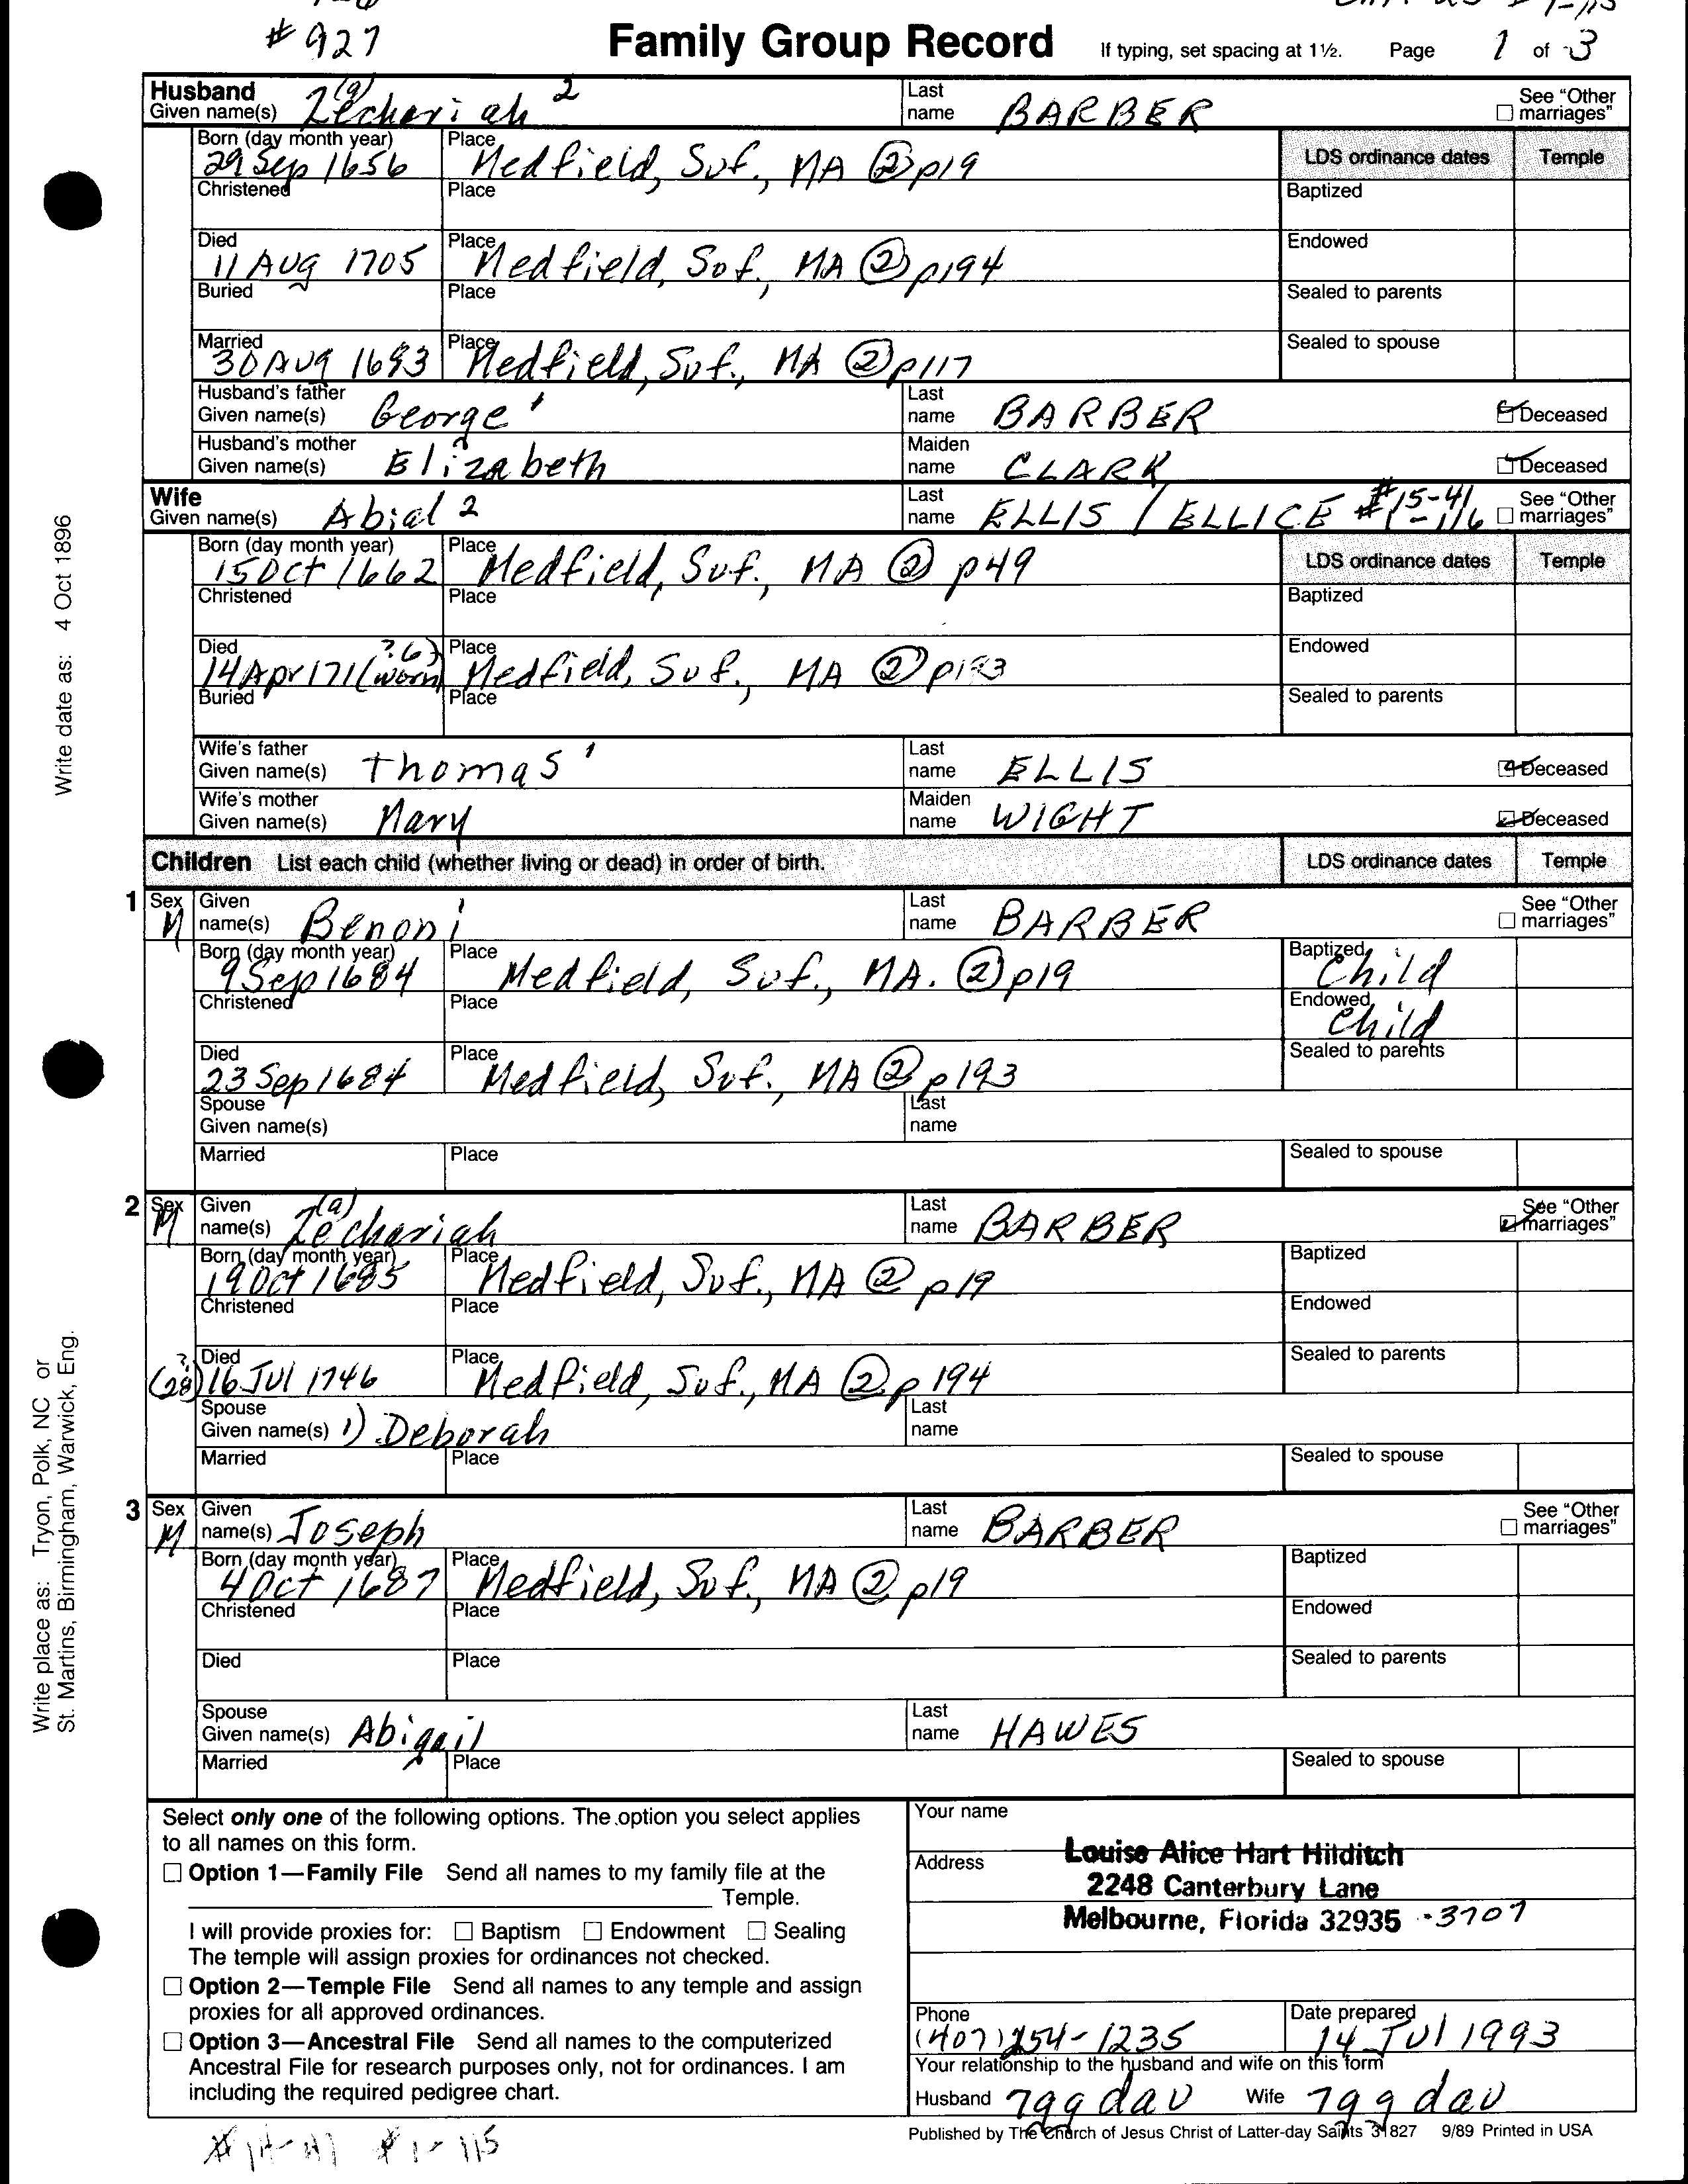 # 927 Family Group Record If typing, set spacing at 1½. Page 1 of 3
Husband
Given name(s) Ze(a)chariah 2 Last name BARBER ☐ See "Other marriages"
Born (day month year) 29 Sep 1656 Place Medfield, Suf., MA ② p19 LDS ordinance dates Temple
Christened Place Baptized
Died 11 Aug 1705 Place Medfield, Suf., MA ② p194 Endowed
Buried Place Sealed to parents
Married 30 Aug 1683 Place Medfield, Suf., MA ② p117 Sealed to spouse
Husband's father Given name(s) George 1 Last name BARBER ☑ Deceased
Husband's mother Given name(s) Elizabeth Maiden name CLARK ☑ Deceased
Wife
Given name(s) Abial 2 Last name ELLIS / ELLICE #15-41 1-116 ☐ See "Other marriages"
Born (day month year) 15 Oct 1662 Place Medfield, Suf., MA ② p49 LDS ordinance dates Temple
Christened Place Baptized
Died 14 Apr 171(worn ?6) Place Medfield, Suf., MA ② p193 Endowed
Buried Place Sealed to parents
Wife's father Given name(s) Thomas 1 Last name ELLIS ☑ Deceased
Wife's mother Given name(s) Mary Maiden name WIGHT ☑ Deceased
Children List each child (whether living or dead) in order of birth. LDS ordinance dates Temple
1 Sex M Given name(s) Benoni Last name BARBER ☐ See "Other marriages"
Born (day month year) 9 Sep 1684 Place Medfield, Suf., MA. ② p19 Baptized Child
Christened Place Endowed Child
Died 23 Sep 1684 Place Medfield, Suf., MA ② p193 Sealed to parents
Spouse Given name(s) Last name
Married Place Sealed to spouse
2 Sex M Given name(s) Ze(a)chariah Last name BARBER ☑ See "Other marriages"
Born (day month year) 19 Oct 1685 Place Medfield, Suf., MA ② p19 Baptized
Christened Place Endowed
(28?) Died 16 Jul 1746 Place Medfield, Suf., MA ② p 194 Sealed to parents
Spouse Given name(s) 1) Deborah Last name
Married Place Sealed to spouse
3 Sex M Given name(s) Joseph Last name BARBER ☐ See "Other marriages"
Born (day month year) 4 Oct 1687 Place Medfield, Suf., MA ② p19 Baptized
Christened Place Endowed
Died Place Sealed to parents
Spouse Given name(s) Abigail Last name HAWES
Married Place Sealed to spouse
Select only one of the following options. The option you select applies
to all names on this form.
☐ Option 1—Family File Send all names to my family file at the
Temple.
I will provide proxies for: ☐ Baptism ☐ Endowment ☐ Sealing
The temple will assign proxies for ordinances not checked.
☐ Option 2—Temple File Send all names to any temple and assign
proxies for all approved ordinances.
☐ Option 3—Ancestral File Send all names to the computerized
Ancestral File for research purposes only, not for ordinances. I am
including the required pedigree chart.
Your name
Address Louise Alice Hart Hilditch
2248 Canterbury Lane
Melbourne, Florida 32935 -3707
Phone (407) 254-1235 Date prepared 14 Jul 1993
Your relationship to the husband and wife on this form
Husband 7gg dau Wife 7gg dau
Published by The Church of Jesus Christ of Latter-day Saints 31827 9/89 Printed in USA
#1-115
Write date as: 4 Oct 1896
Write place as: Tryon, Polk, NC or
St. Martins, Birmingham, Warwick, Eng.